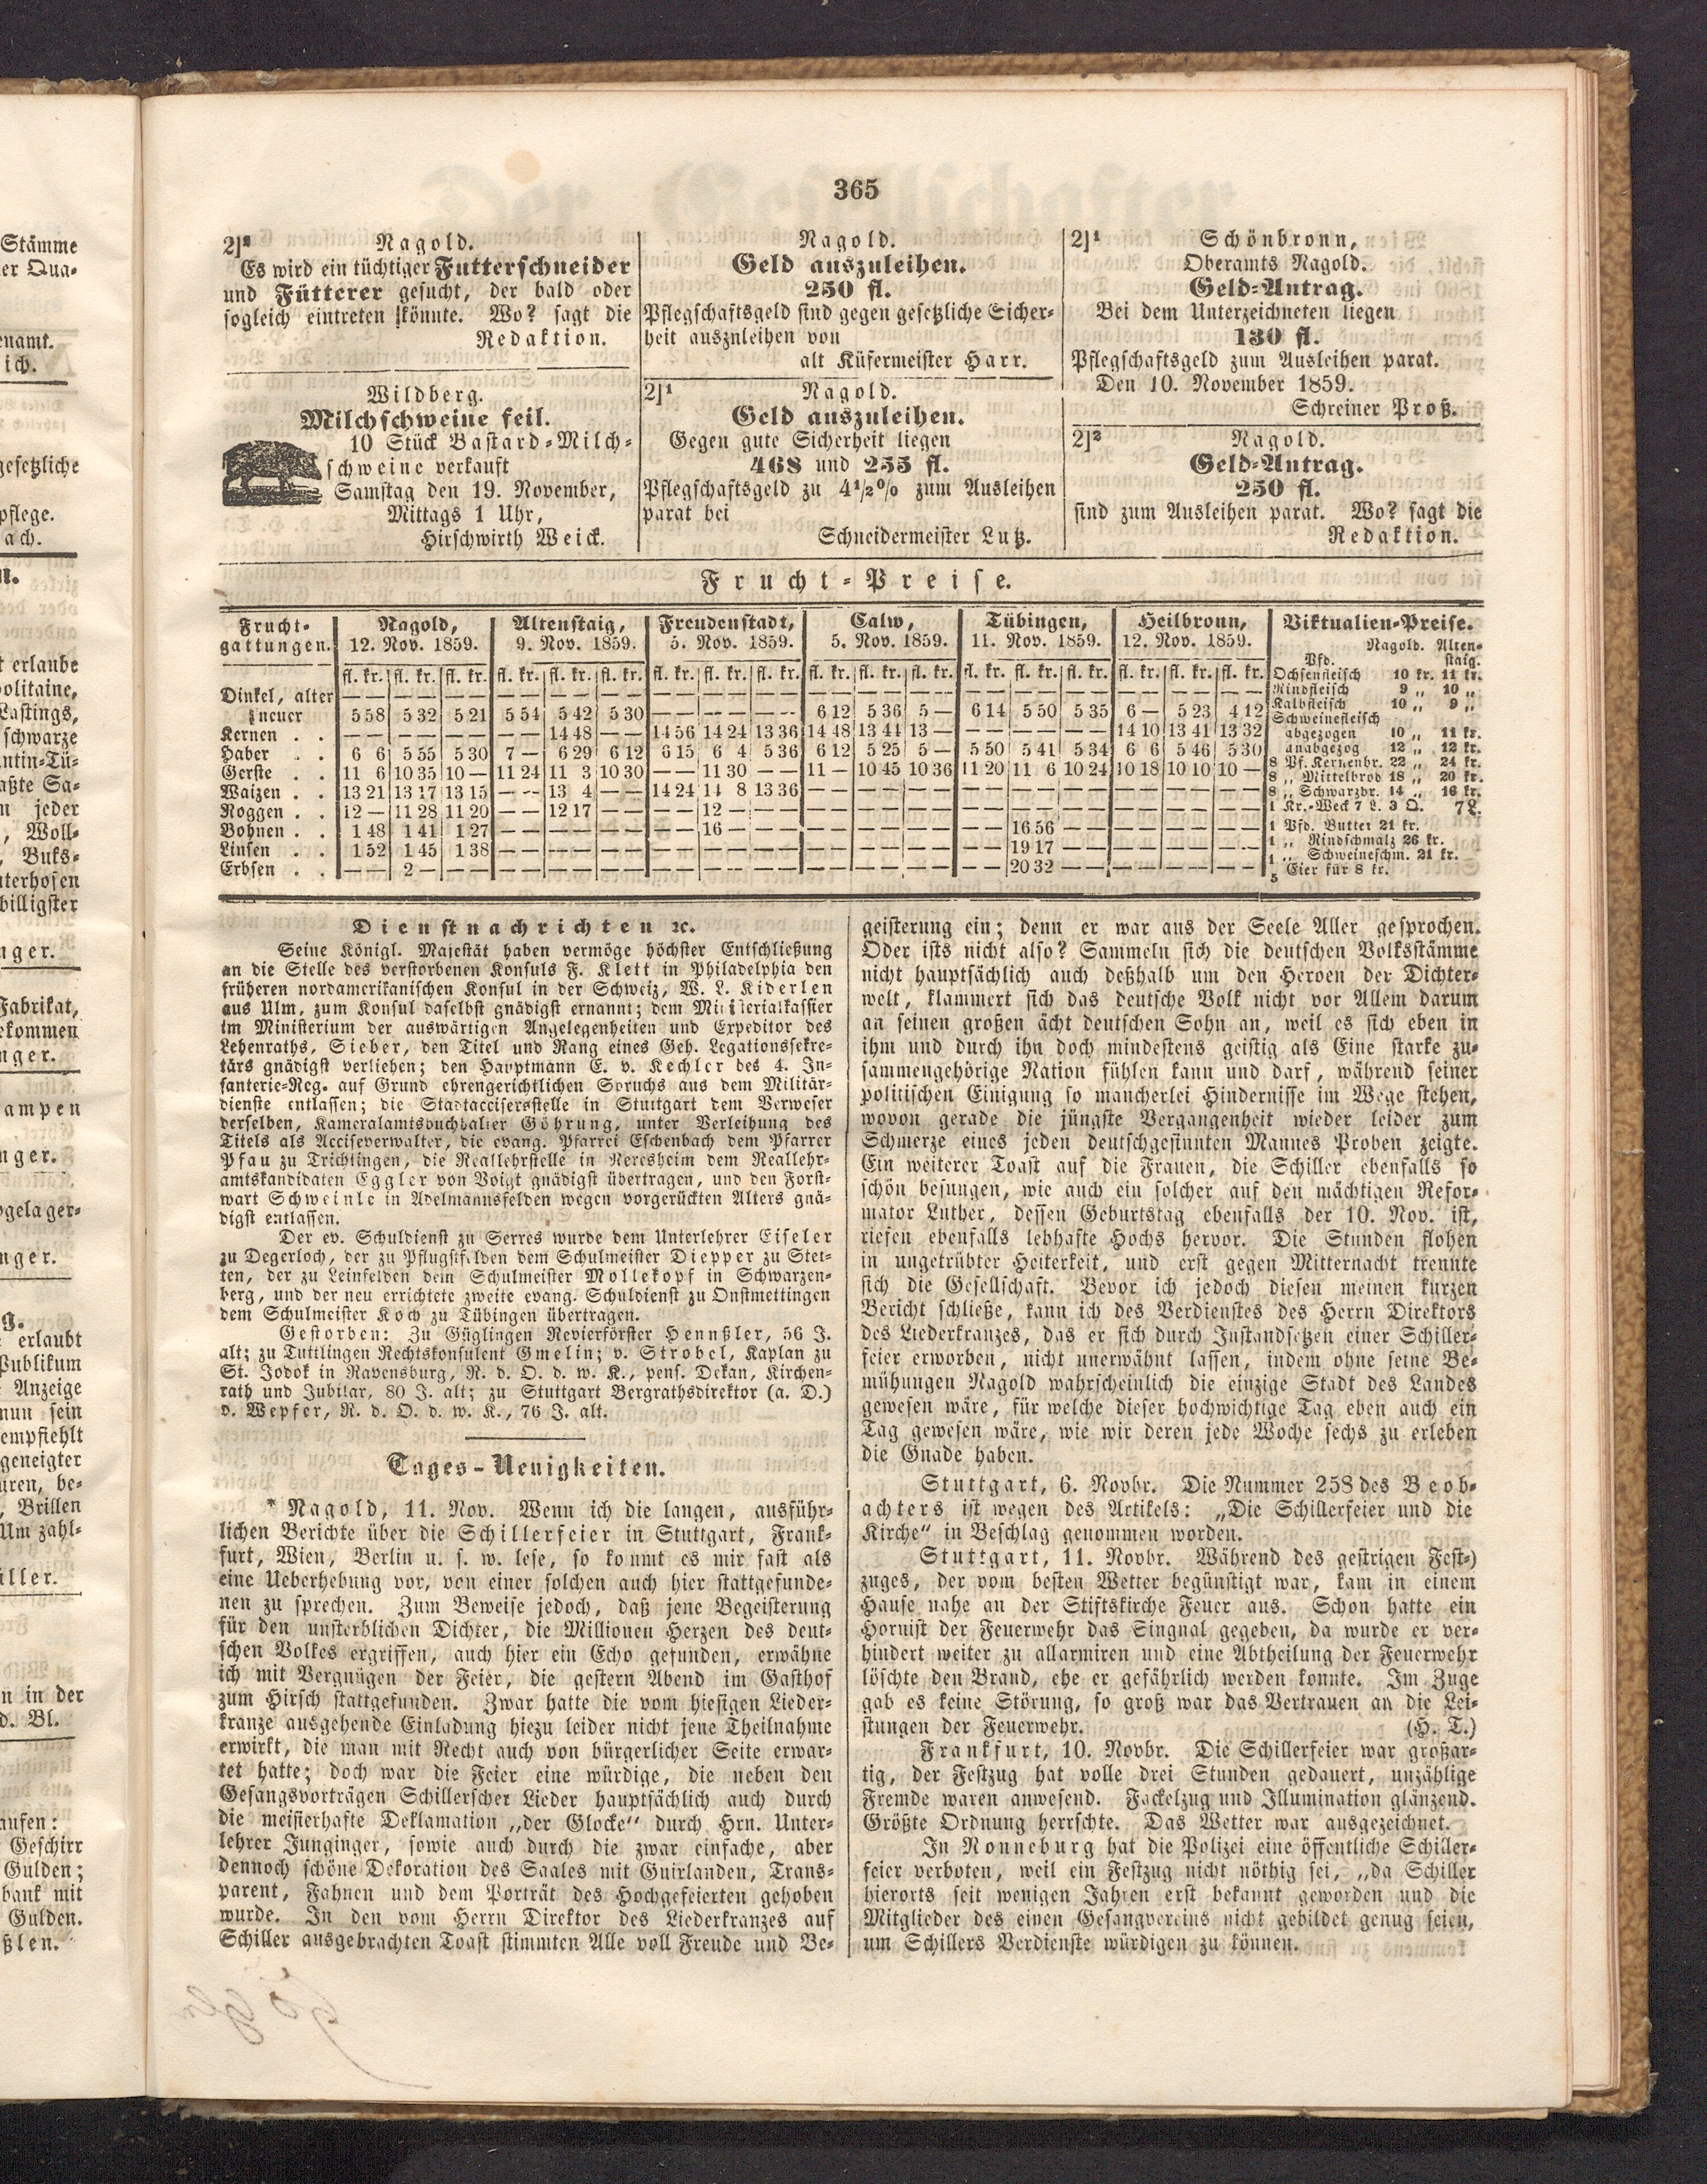 365
2]² Nagold.
Es wird ein tüchtiger Futterschneider
und Fütterer gesucht, der bald oder
sogleich eintreten könnte. Wo? sagt die
Redaktion.
Wildberg.
Milchschweine feil.
10 Stück Bastard-Milch-
schweine verkauft
Samstag den 19. November,
Mittags 1 Uhr,
Hirschwirth Weick.
Nagold.
Geld auszuleihen.
250 fl.
Pflegschaftsgeld sind gegen gesetzliche Sicher-
heit auszuleihen von
alt Küfermeister Harr.
2]¹ Nagold.
Geld auszuleihen.
Gegen gute Sicherheit liegen
468 und 255 fl.
Pflegschaftsgeld zu 4½% zum Ausleihen
parat bei
Schneidermeister Lutz.
2]¹ Schönbronn,
Oberamts Nagold.
Geld-Antrag.
Bei dem Unterzeichneten liegen
130 fl.
Pflegschaftsgeld zum Ausleihen parat.
Den 10. November 1859.
Schreiner Proß.
2]² Nagold.
Geld-Antrag.
250 fl.
sind zum Ausleihen parat. Wo? sagt die
Redaktion.
Frucht-Preise.
Frucht-gattungen. | Nagold, 12. Nov. 1859. | Altenstaig, 9. Nov. 1859. | Freudenstadt, 5. Nov. 1859. | Calw, 5. Nov. 1859. | Tübingen, 11. Nov. 1859. | Heilbronn, 12. Nov. 1859.
fl. kr. fl. kr. fl. kr. | fl. kr. fl. kr. fl. kr. | fl. kr. fl. kr. fl. kr. | fl. kr. fl. kr. fl. kr. | fl. kr. fl. kr. fl. kr. | fl. kr. fl. kr. fl. kr.
Dinkel, alter | — — — — — — | — — — — — — | — — — — — — | — — — — — — | — — — — — — | — — — — — —
neuer | 5 58 5 32 5 21 | 5 54 5 42 5 30 | — — — — — — | 6 12 5 36 5 — | 6 14 5 50 5 35 | 6 — 5 23 4 12
Kernen . . | — — — — — — | — — 14 48 — — | 14 56 14 24 13 36 | 14 48 13 44 13 — | — — — — — — | 14 10 13 41 13 32
Haber . . | 6 6 5 55 5 30 | 7 — 6 29 6 12 | 6 15 6 4 5 36 | 6 12 5 25 5 — | 5 50 5 41 5 34 | 6 6 5 46 5 30
Gerste . . | 11 6 10 35 10 — | 11 24 11 3 10 30 | — — 11 30 — — | 11 — 10 45 10 36 | 11 20 11 6 10 24 | 10 18 10 10 10 —
Waizen . . | 13 21 13 17 13 15 | — — 13 4 — — | 14 24 14 8 13 36 | — — — — — — | — — — — — — | — — — — — —
Roggen . . | 12 — 11 28 11 20 | — — 12 17 — — | — — 12 — — — | — — — — — — | — — — — — — | — — — — — —
Bohnen . . | 1 48 1 41 1 27 | — — — — — — | — — 16 — — — | — — — — — — | — — 16 56 — — | — — — — — —
Linsen . . | 1 52 1 45 1 38 | — — — — — — | — — — — — — | — — — — — — | — — 19 17 — — | — — — — — —
Erbsen . . | — — 2 — — — | — — — — — — | — — — — — — | — — — — — — | — — 20 32 — — | — — — — — —
Viktualien-Preise.
Nagold. Alten-
Pfd. staig.
Ochsenfleisch 10 kr. 11 kr.
Rindfleisch 9 „ 10 „
Kalbfleisch 10 „ 9 „
Schweinefleisch
abgezogen 10 „ 11 kr.
unabgezog 12 „ 12 kr.
8 Pf. Kernenbr. 22 „ 24 kr.
8 „ Mittelbrod 18 „ 20 kr.
8 „ Schwarzbr. 14 „ 16 kr.
1 Kr.-Weck 7 L. 3 Q. 7 L.
1 Pfd. Butter 21 kr.
1 „ Rindschmalz 26 kr.
1 „ Schweineschm. 21 kr.
5 Eier für 8 kr.
Dienstnachrichten ꝛc.
Seine Königl. Majestät haben vermöge höchster Entschließung
an die Stelle des verstorbenen Konsuls F. Klett in Philadelphia den
früheren nordamerikanischen Konsul in der Schweiz, W. L. Kiderlen
aus Ulm, zum Konsul daselbst gnädigst ernannt; dem Ministerialkassier
im Ministerium der auswärtigen Angelegenheiten und Expeditor des
Lehenraths, Sieber, den Titel und Rang eines Geh. Legationssekre-
tärs gnädigst verliehen; den Hauptmann E. v. Kechler des 4. In-
fanterie-Reg. auf Grund ehrengerichtlichen Spruchs aus dem Militär-
dienste entlassen; die Stadtaccisersstelle in Stuttgart dem Verweser
derselben, Kameralamtsbuchhalter Göhrung, unter Verleihung des
Titels als Acciseverwalter, die evang. Pfarrei Eschenbach dem Pfarrer
Pfau zu Trichtingen, die Reallehrstelle in Neresheim dem Reallehr-
amtskandidaten Eggler von Voigt gnädigst übertragen, und den Forst-
wart Schweinle in Adelmannsfelden wegen vorgerückten Alters gnä-
digst entlassen.
Der ev. Schuldienst zu Serres wurde dem Unterlehrer Eiseler
zu Degerloch, der zu Pflugfelden dem Schulmeister Diepper zu Stet-
ten, der zu Leinfelden dem Schulmeister Mollekopf in Schwarzen-
berg, und der neu errichtete zweite evang. Schuldienst zu Onstmettingen
dem Schulmeister Koch zu Tübingen übertragen.
Gestorben: Zu Güglingen Revierförster Hennßler, 56 J.
alt; zu Tuttlingen Rechtskonsulent Gmelin; v. Strobel, Kaplan zu
St. Jodok in Ravensburg, R. d. O. d. w. K., pens. Dekan, Kirchen-
rath und Jubilar, 80 J. alt; zu Stuttgart Bergrathsdirektor (a. D.)
v. Wepfer, R. d. O. d. w. K., 76 J. alt.
Tages-Neuigkeiten.
* Nagold, 11. Nov. Wenn ich die langen, ausführ-
lichen Berichte über die Schillerfeier in Stuttgart, Frank-
furt, Wien, Berlin u. s. w. lese, so kommt es mir fast als
eine Ueberhebung vor, von einer solchen auch hier stattgefunde-
nen zu sprechen. Zum Beweise jedoch, daß jene Begeisterung
für den unsterblichen Dichter, die Millionen Herzen des deut-
schen Volkes ergriffen, auch hier ein Echo gefunden, erwähne
ich mit Vergnügen der Feier, die gestern Abend im Gasthof
zum Hirsch stattgefunden. Zwar hatte die vom hiesigen Lieder-
kranze ausgehende Einladung hiezu leider nicht jene Theilnahme
erwirkt, die man mit Recht auch von bürgerlicher Seite erwar-
tet hatte; doch war die Feier eine würdige, die neben den
Gesangsvorträgen Schillerscher Lieder hauptsächlich auch durch
die meisterhafte Deklamation „der Glocke“ durch Hrn. Unter-
lehrer Junginger, sowie auch durch die zwar einfache, aber
dennoch schöne Dekoration des Saales mit Guirlanden, Trans-
parent, Fahnen und dem Porträt des Hochgefeierten gehoben
wurde. In den vom Herrn Direktor des Liederkranzes auf
Schiller ausgebrachten Toast stimmten Alle voll Freude und Be-
geisterung ein; denn er war aus der Seele Aller gesprochen.
Oder ists nicht also? Sammeln sich die deutschen Volksstämme
nicht hauptsächlich auch deßhalb um den Heroen der Dichter-
welt, klammert sich das deutsche Volk nicht vor Allem darum
an seinen großen ächt deutschen Sohn an, weil es sich eben in
ihm und durch ihn doch mindestens geistig als Eine starke zu-
sammengehörige Nation fühlen kann und darf, während seiner
politischen Einigung so mancherlei Hindernisse im Wege stehen,
wovon gerade die jüngste Vergangenheit wieder leider zum
Schmerze eines jeden deutschgesinnten Mannes Proben zeigte.
Ein weiterer Toast auf die Frauen, die Schiller ebenfalls so
schön besungen, wie auch ein solcher auf den mächtigen Refor-
mator Luther, dessen Geburtstag ebenfalls der 10. Nov. ist,
riefen ebenfalls lebhafte Hochs hervor. Die Stunden flohen
in ungetrübter Heiterkeit, und erst gegen Mitternacht trennte
sich die Gesellschaft. Bevor ich jedoch diesen meinen kurzen
Bericht schließe, kann ich des Verdienstes des Herrn Direktors
des Liederkranzes, das er sich durch Instandsetzen einer Schiller-
feier erworben, nicht unerwähnt lassen, indem ohne seine Be-
mühungen Nagold wahrscheinlich die einzige Stadt des Landes
gewesen wäre, für welche dieser hochwichtige Tag eben auch ein
Tag gewesen wäre, wie wir deren jede Woche sechs zu erleben
die Gnade haben.
Stuttgart, 6. Novbr. Die Nummer 258 des Beob-
achters ist wegen des Artikels: „Die Schillerfeier und die
Kirche“ in Beschlag genommen worden.
Stuttgart, 11. Novbr. Während des gestrigen Fest-)
zuges, der vom besten Wetter begünstigt war, kam in einem
Hause nahe an der Stiftskirche Feuer aus. Schon hatte ein
Hornist der Feuerwehr das Singnal gegeben, da wurde er ver-
hindert weiter zu allarmiren und eine Abtheilung der Feuerwehr
löschte den Brand, ehe er gefährlich werden konnte. Im Zuge
gab es keine Störung, so groß war das Vertrauen an die Lei-
stungen der Feuerwehr. (H. T.)
Frankfurt, 10. Novbr. Die Schillerfeier war großar-
tig, der Festzug hat volle drei Stunden gedauert, unzählige
Fremde waren anwesend. Fackelzug und Illumination glänzend.
Größte Ordnung herrschte. Das Wetter war ausgezeichnet.
In Ronneburg hat die Polizei eine öffentliche Schiller-
feier verboten, weil ein Festzug nicht nöthig sei, „da Schiller
hierorts seit wenigen Jahren erst bekannt geworden und die
Mitglieder des einen Gesangvereins nicht gebildet genug seien,
um Schillers Verdienste würdigen zu können.